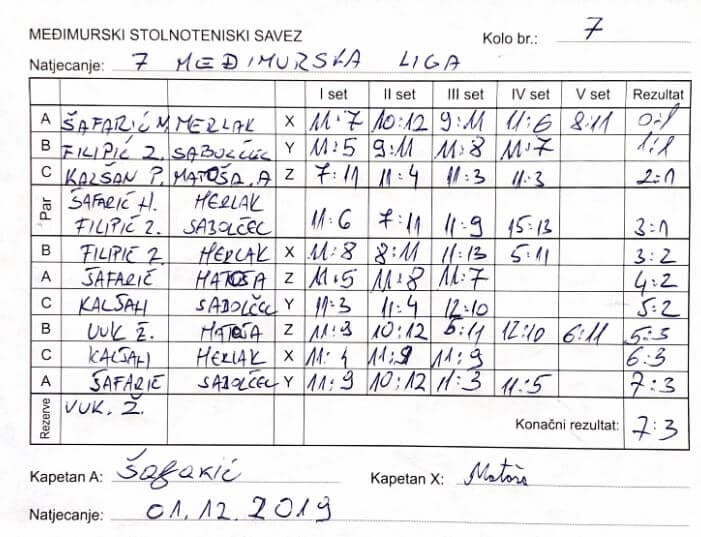 MEĐIMURSKI STOLNOTENISKI SAVEZ Kolo br.: 7
Natjecanje: 7 MEĐIMURSKA LIGA
I set II set III set IV set V set Rezultat
A ŠAFARIĆ M MERLAK X 11:7 10:12 9:11 11:6 8:11 0:1
B FILIPIĆ Z. SABOLČEC Y 11:5 9:11 11:8 11:7 1:1
C KALŠAN P. MATOŠA.A Z 7:11 11:4 11:3 11:3 2:1
Par ŠAFARIĆ H. MERLAK
FILIPIĆ Z. SABOLČEC 11:6 7:11 11:9 15:13 3:1
B FILIPIĆ Z MERLAK X 11:8 8:11 11:13 5:11 3:2
A ŠAFARIĆ MATOŠA Z 11:5 11:8 11:7 4:2
C KALŠAN SABOLČEC Y 11:3 11:4 12:10 5:2
B VUK Ž. MATOŠA Z 11:9 10:12 6:11 12:10 6:11 5:3
C KALŠAN MERLAK X 11:4 11:9 11:9 6:3
A ŠAFARIĆ SABOLČEC Y 11:9 10:12 11:3 11:5 7:3
Rezerve VUK. Ž. Konačni rezultat: 7:3
Kapetan A: Šafarić Kapetan X: Matoša
Natjecanje: 01.12.2019